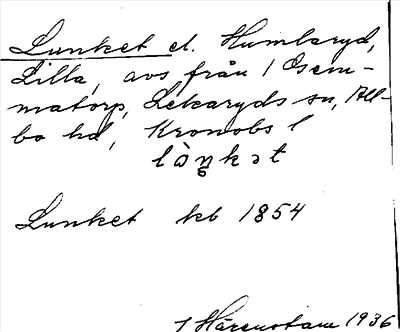 Lunket el. Humlaryd,
Lilla, avs från 1 Osem-
matorp, Lekaryds sn, All-
bo hd, Kronobs l
lȧŋkət
Lunket kb 1854
1936